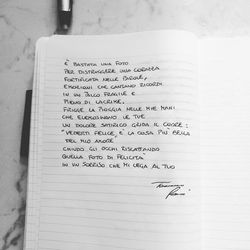 È BASTATA UNA FOTO
PER DISTRUGGERE UNA CORAZZA
FORTIFICATA NELLE PAROLE,
EMOZIONI CHE CANTANO RICORDI
IN UN FRAGILE E
PIENO DI LACRIME,
FRUGA LA PIOGGIA NELLE MIE MANI
CHE ELEMOSINANO LE TUE
UN DOLORE SATIRICO GRIDA IL CUORE:
"VEDERTI FELICE, È LA COSA PIU' BELLA
DEL MIO AMORE
CHIUDO GLI OCCHI RISCATTANDO
QUELLA FOTO DI FELICITÀ"
IN UN SORRISO CHE MI LEGA AL TUO